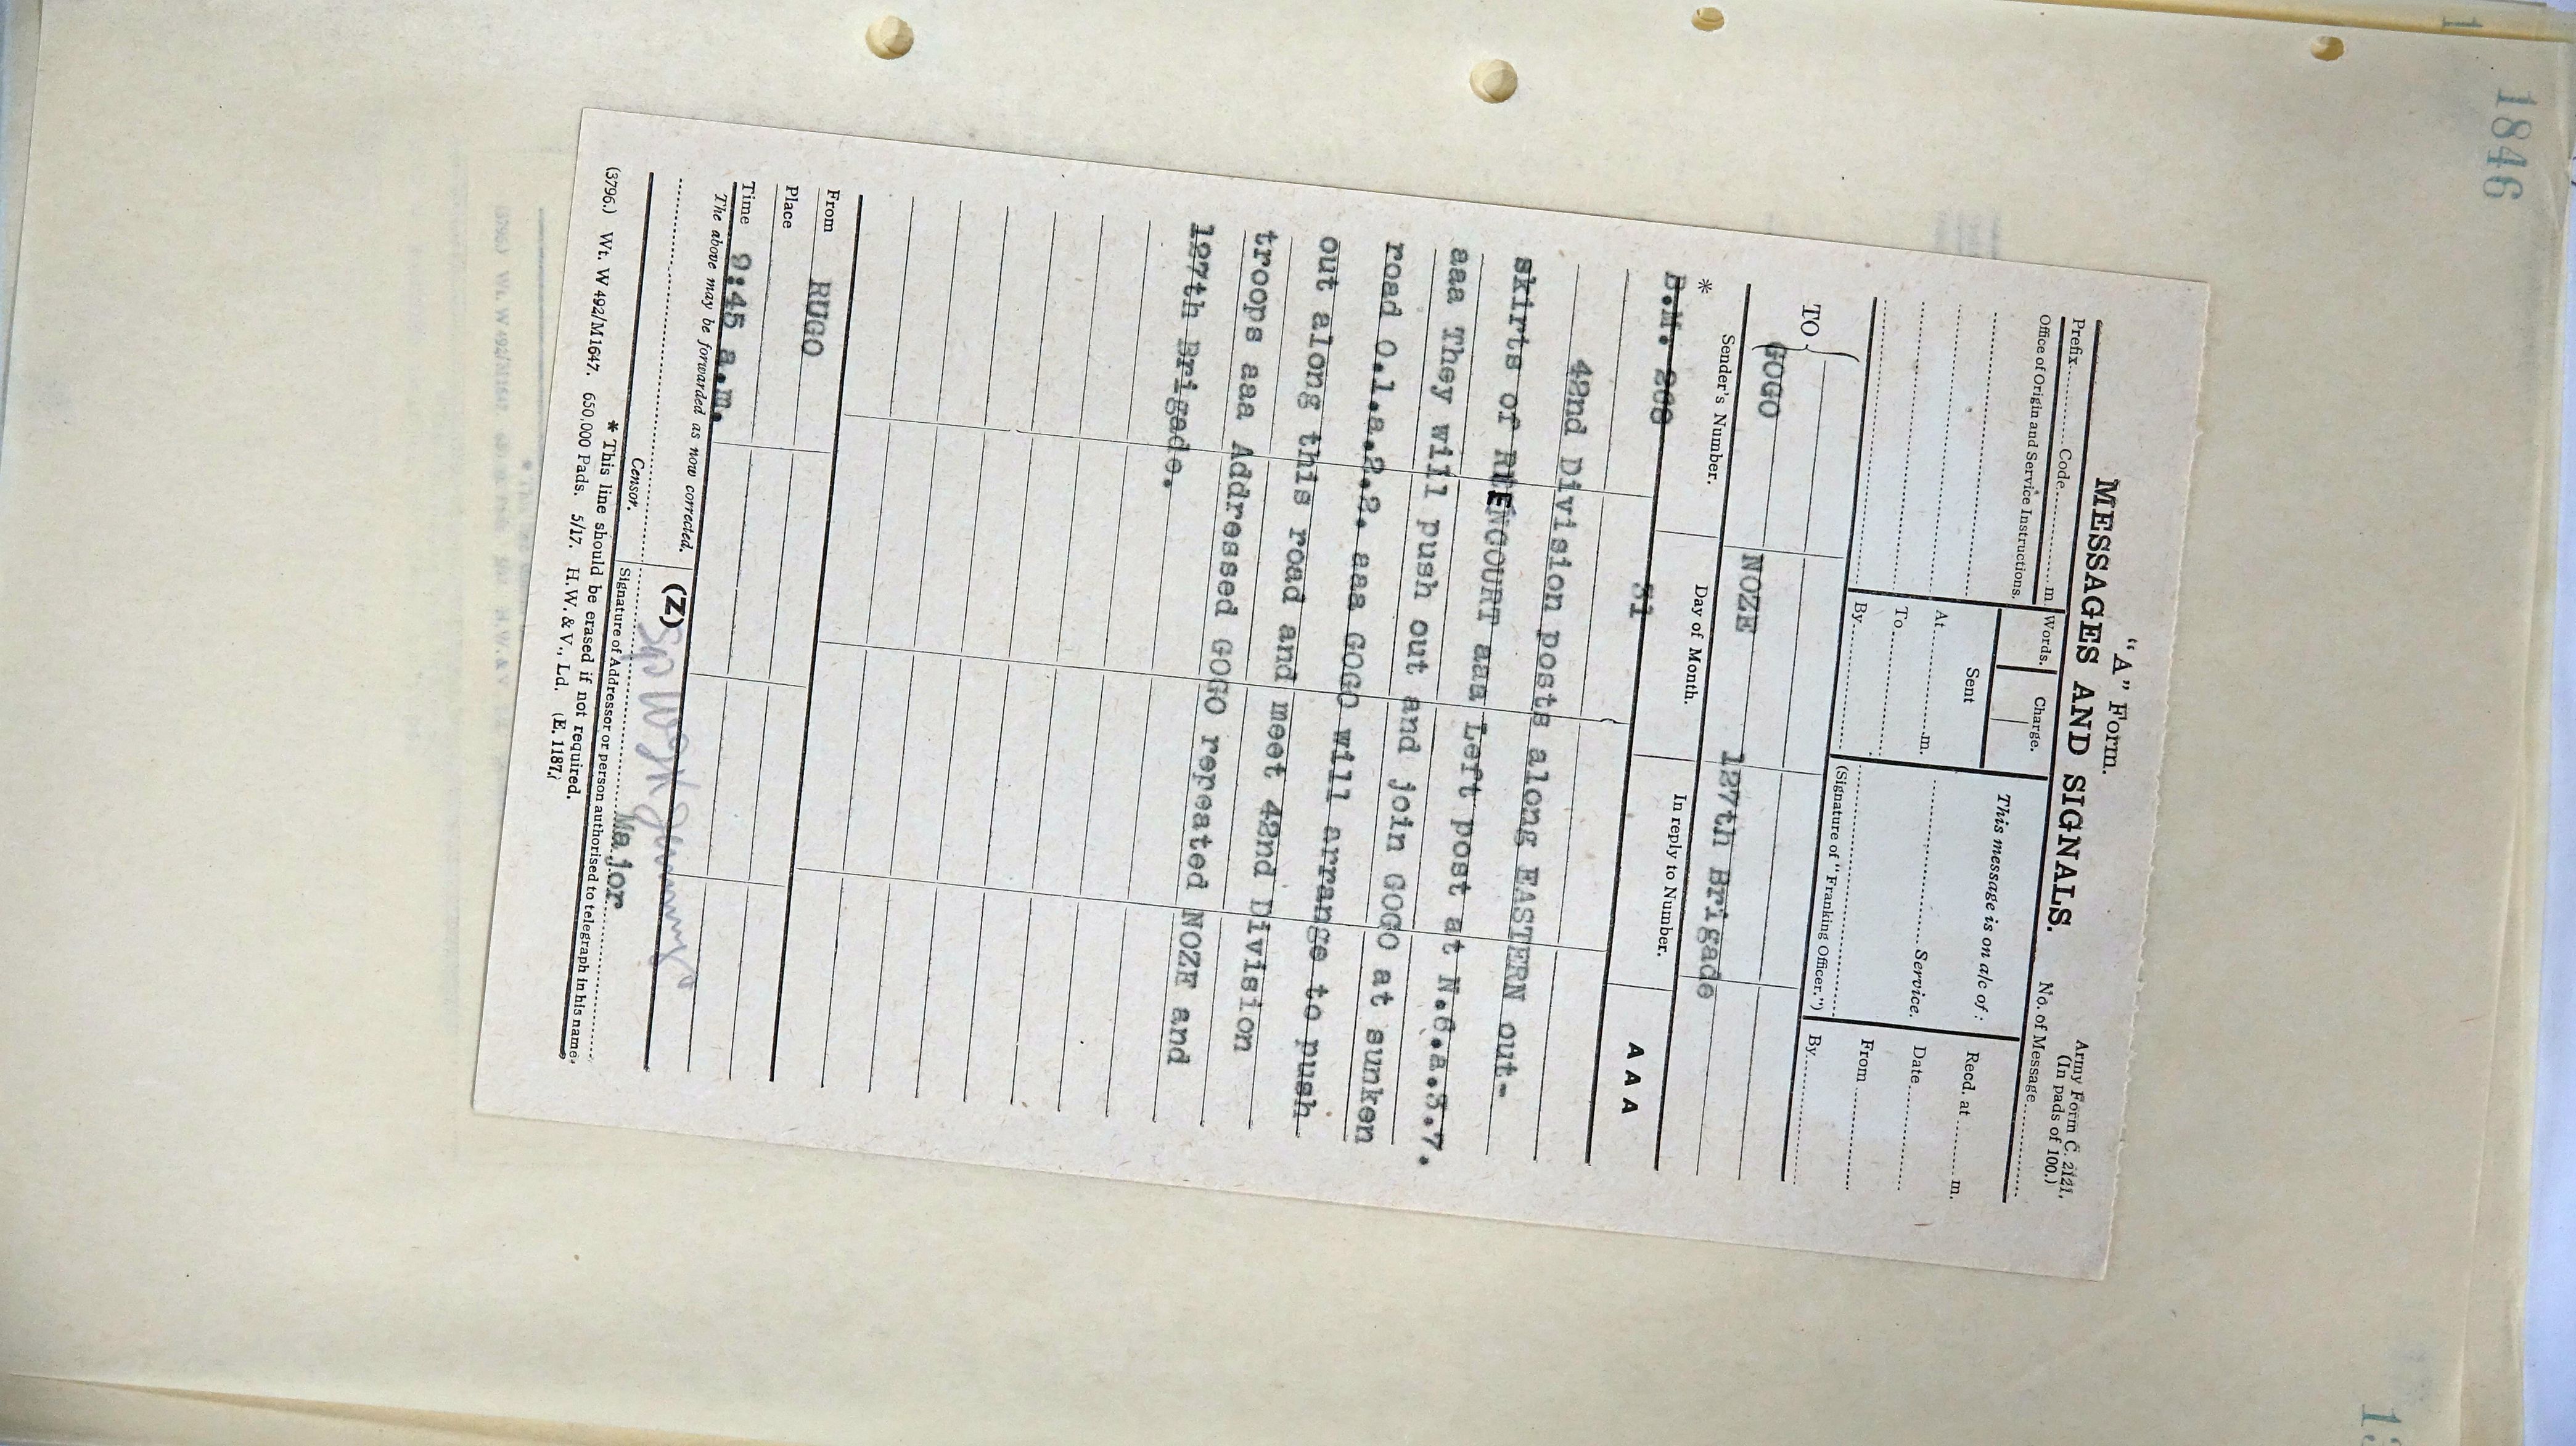 1846
"A" Form.
Army Form C. 2121.
MESSAGES AND SIGNALS.
(In pads of 100.)
No. of Message
Prefix Code m.
Words.
Charge.
This message is on a/c of:
Recd. at m.
Office of Origin and Service Instructions.
Sent
Service.
Date
At m.
From
To
By
(Signature of "Franking Officer.")
By
TO
GOGO NOZE 127th Brigade
* Sender's Number.
Day of Month.
In reply to Number.
AAA
B.M. 31
42nd Division posts along EASTERN out-
skirts of RIENCOURT aaa Left post at N.6.a.3.7.
aaa They will push out and join GOGO at sunken
road O.1.a.2.2. aaa GOGO will arrange to push
out along this road and meet 42nd Division
troops aaa Addressed GOGO repeated NOZE and
127th Brigade.
From RUGO
Place
Time 9:45 a.m.
The above may be forwarded as now corrected.
(Z)
Major
Censor.
Signature of Addressor or person authorised to telegraph in his name.
* This line should be erased if not required.
(3796.) Wt. W 492/M1647. 650,000 Pads. 5/17. H.W. & V., Ld. (E. 1187.)